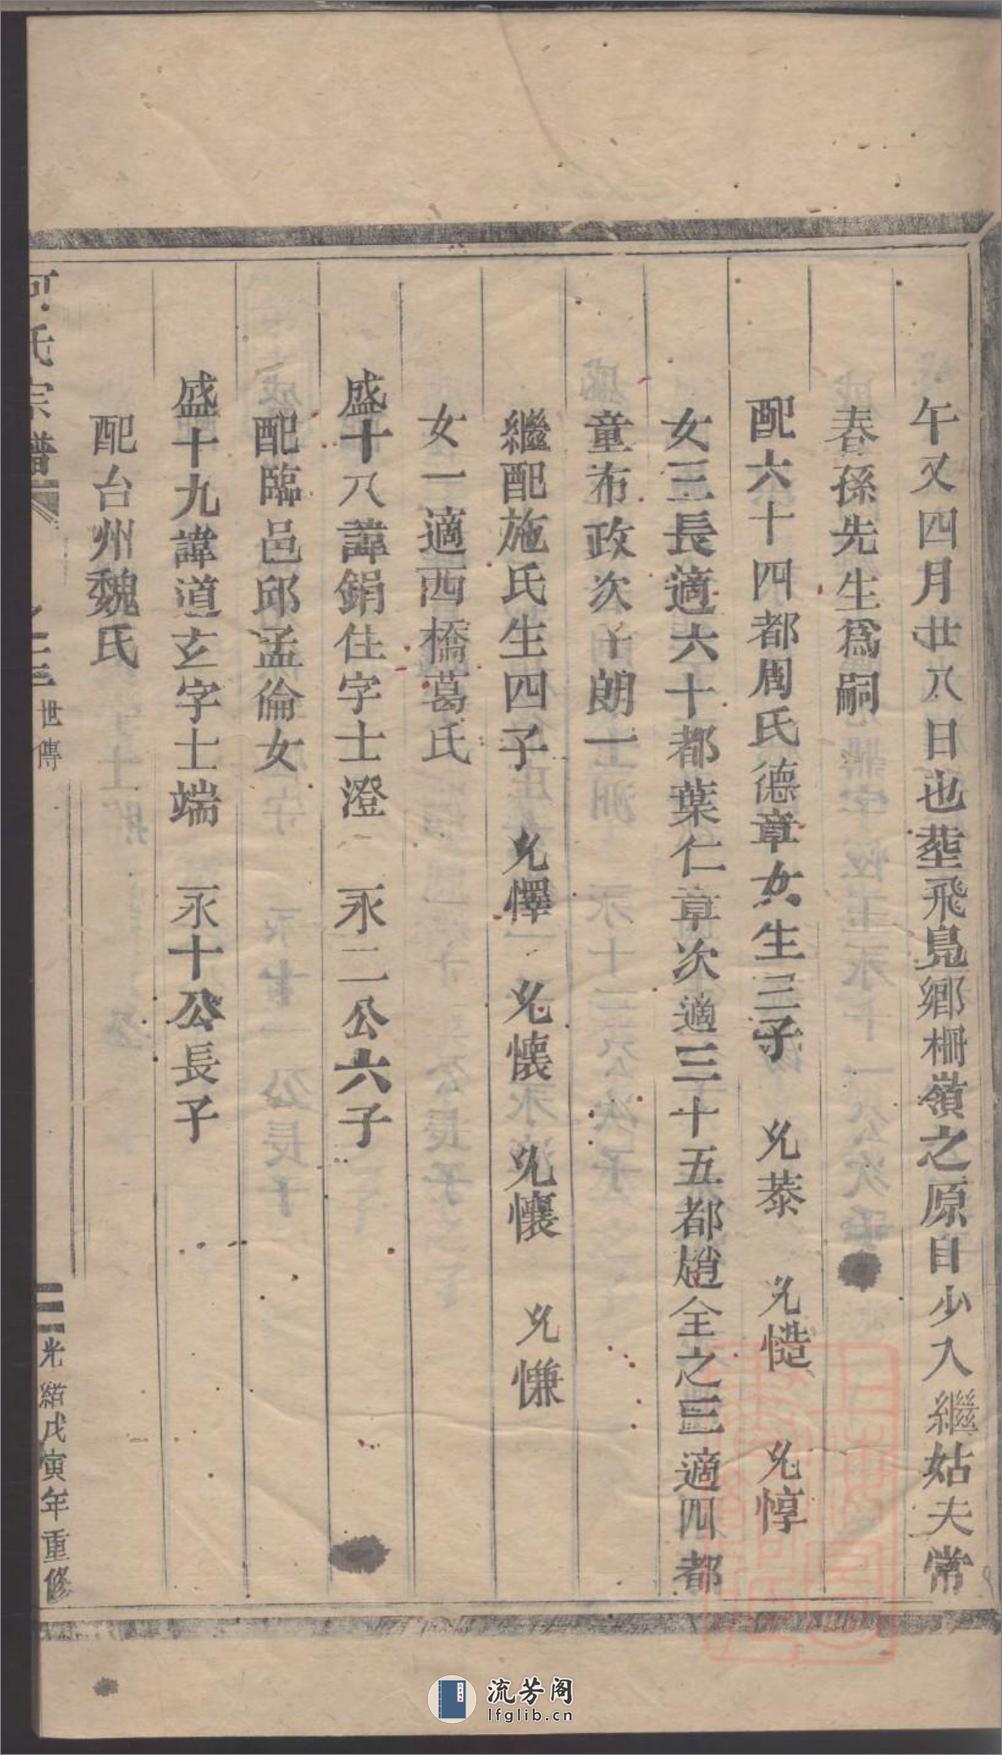 午又四月廿八日也塟飛鳧鄉栅嶺之原自少入繼姑夫常
春孫先生爲嗣
配六十四都周氏德章女生三子 允菾 允慥 允惇
女三長適六十都葉仁章次適三十五都趙全之三適四都
童布政次子朗一
繼配施氏生四子 允懌 允懷 允懹 允慊
女一適西橋葛氏
盛十八諱鋗住字士澄 永二公六子
配臨邑邱孟倫女
盛十九諱道玄字士端 永十公長子
配台州魏氏
何氏宗譜 世傳 三 光緒戊寅年重修
流芳阁
lfglib.cn